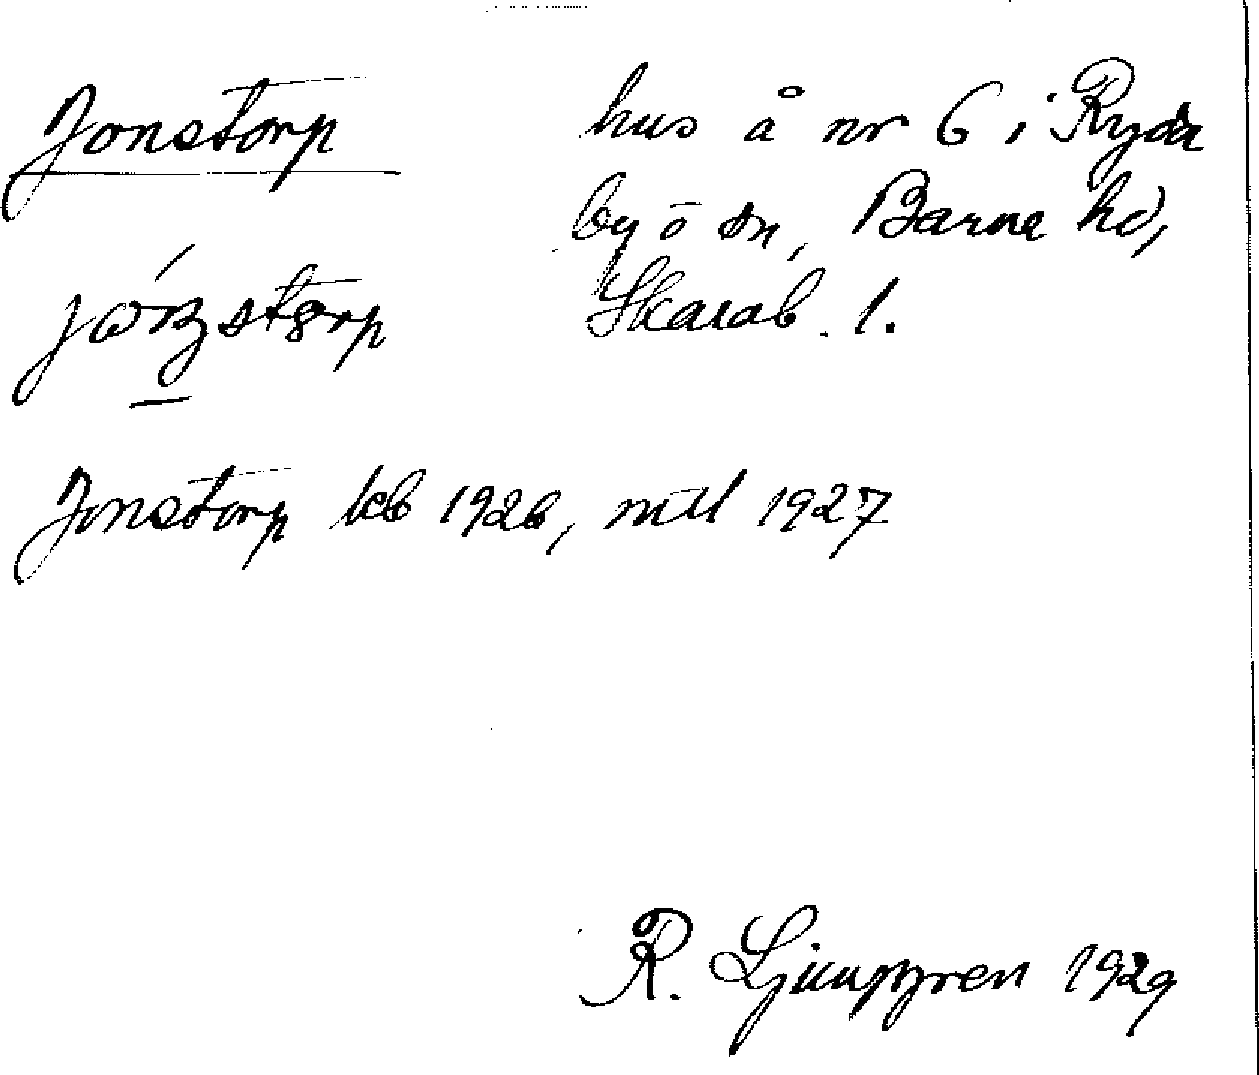 Jonstorp
hus å nr 6 i Ryda
by o sn, Barne hd,
Skarab. l.
Jonstorp lcb 1926, mtl 1927
R. Ljunggren 1929